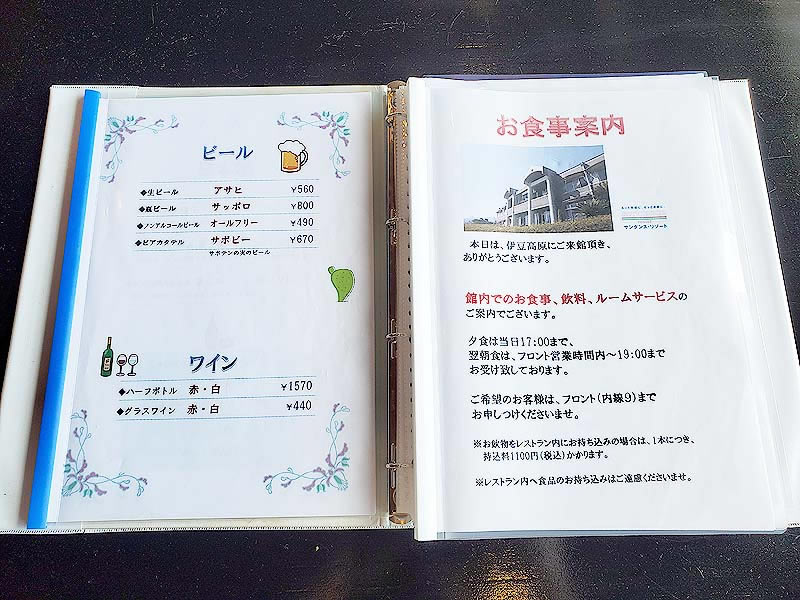 ビール
◆生ビール アサヒ ¥560
◆瓶ビール サッポロ ¥800
◆ノンアルコールビール オールフリー ¥490
◆ビアカクテル サボビー ¥670
サボテンの実のビール
ワイン
◆ハーフボトル 赤・白 ¥1570
◆グラスワイン 赤・白 ¥440
お食事案内
サンダンス・リゾート
本日は、伊豆高原にご来館頂き、
ありがとうございます。
館内でのお食事、飲料、ルームサービスの
ご案内でございます。
夕食は当日17:00まで、
翌朝食は、フロント営業時間内～19:00まで
お受け致しております。
ご希望のお客様は、フロント(内線9)まで
お申しつけくださいませ。
※お飲物をレストラン内にお持ち込みの場合は、1本につき、
持込料1100円(税込)かかります。
※レストラン内へ食品のお持ち込みはご遠慮くださいませ。